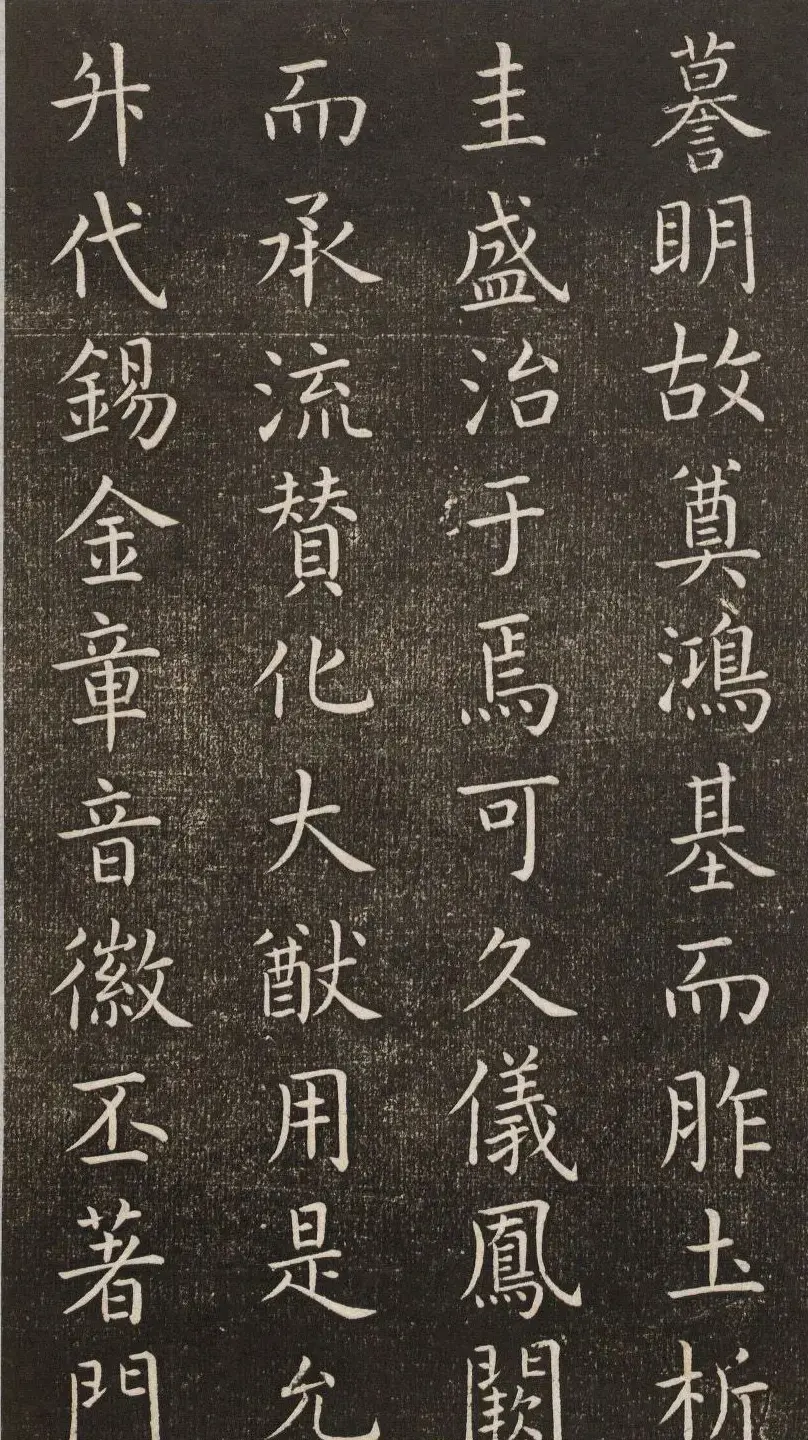 謩明故奠鴻基而胙土析
圭盛治于焉可久儀鳳闕
而承流賛化大猷用是允
升代錫金章音徽丕著門